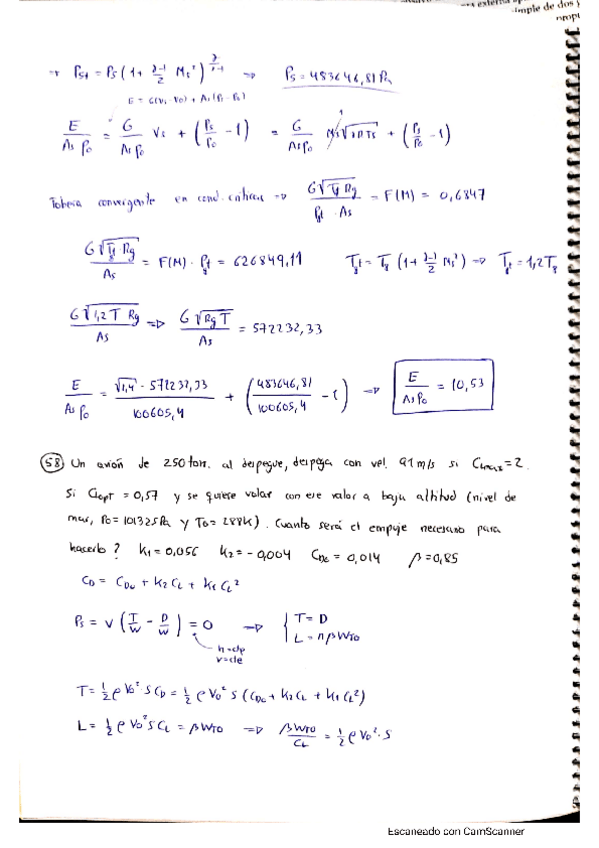 externa
imple de dos y
propu
→ Pst = Ps (1 + (γ-1)/2 Ms²)^(γ/(γ-1)) ⇒ Ps = 483646,81 Pa
E = G(Vs - V0) + As(Ps - P0)
E/(As P0) = G/(As P0) Vs + (Ps/P0 - 1) = G/(As P0) Ms√(γRTs) + (Ps/P0 - 1)
Tobera convergente en cond. críticas ⇒ G√(Tt Rg)/(Pt · As) = F(M) = 0,6847
G√(T8t Rg)/As = F(M) · P8t = 626849,11 T8t = T8 (1 + (γ-1)/2 Ms²) ⇒ T8t = 1,2 T8
G√(1,2 T Rg)/As ⇒ G√(Rg T)/As = 572232,33
E/(As P0) = √1,4 · 572232,33/100605,4 + (483646,81/100605,4 - 1) ⇒ E/(As P0) = 10,53
58 Un avión de 250 ton. al despegue, despega con vel. 91 m/s si CLmax = 2.
Si CLOPT = 0,57 y se quiere volar con ese valor a baja altitud (nivel de
mar, P0 = 101325 Pa y T0 = 288K). Cuanto será el empuje necesario para
hacerlo? K1 = 0,056 K2 = -0,004 CD0 = 0,014 β = 0,85
CD = CD0 + K2 CL + K1 CL²
Ps = V (T/W - D/W) = 0 ⇒ { T = D
L = nβWTO
h = cte
v = cte
T = ½ ρ V0² S CD = ½ ρ V0² S (CD0 + K2 CL + K1 CL²)
L = ½ ρ V0² S CL = β WTO ⇒ β WTO/CL = ½ ρ V0² · S
Escaneado con CamScanner